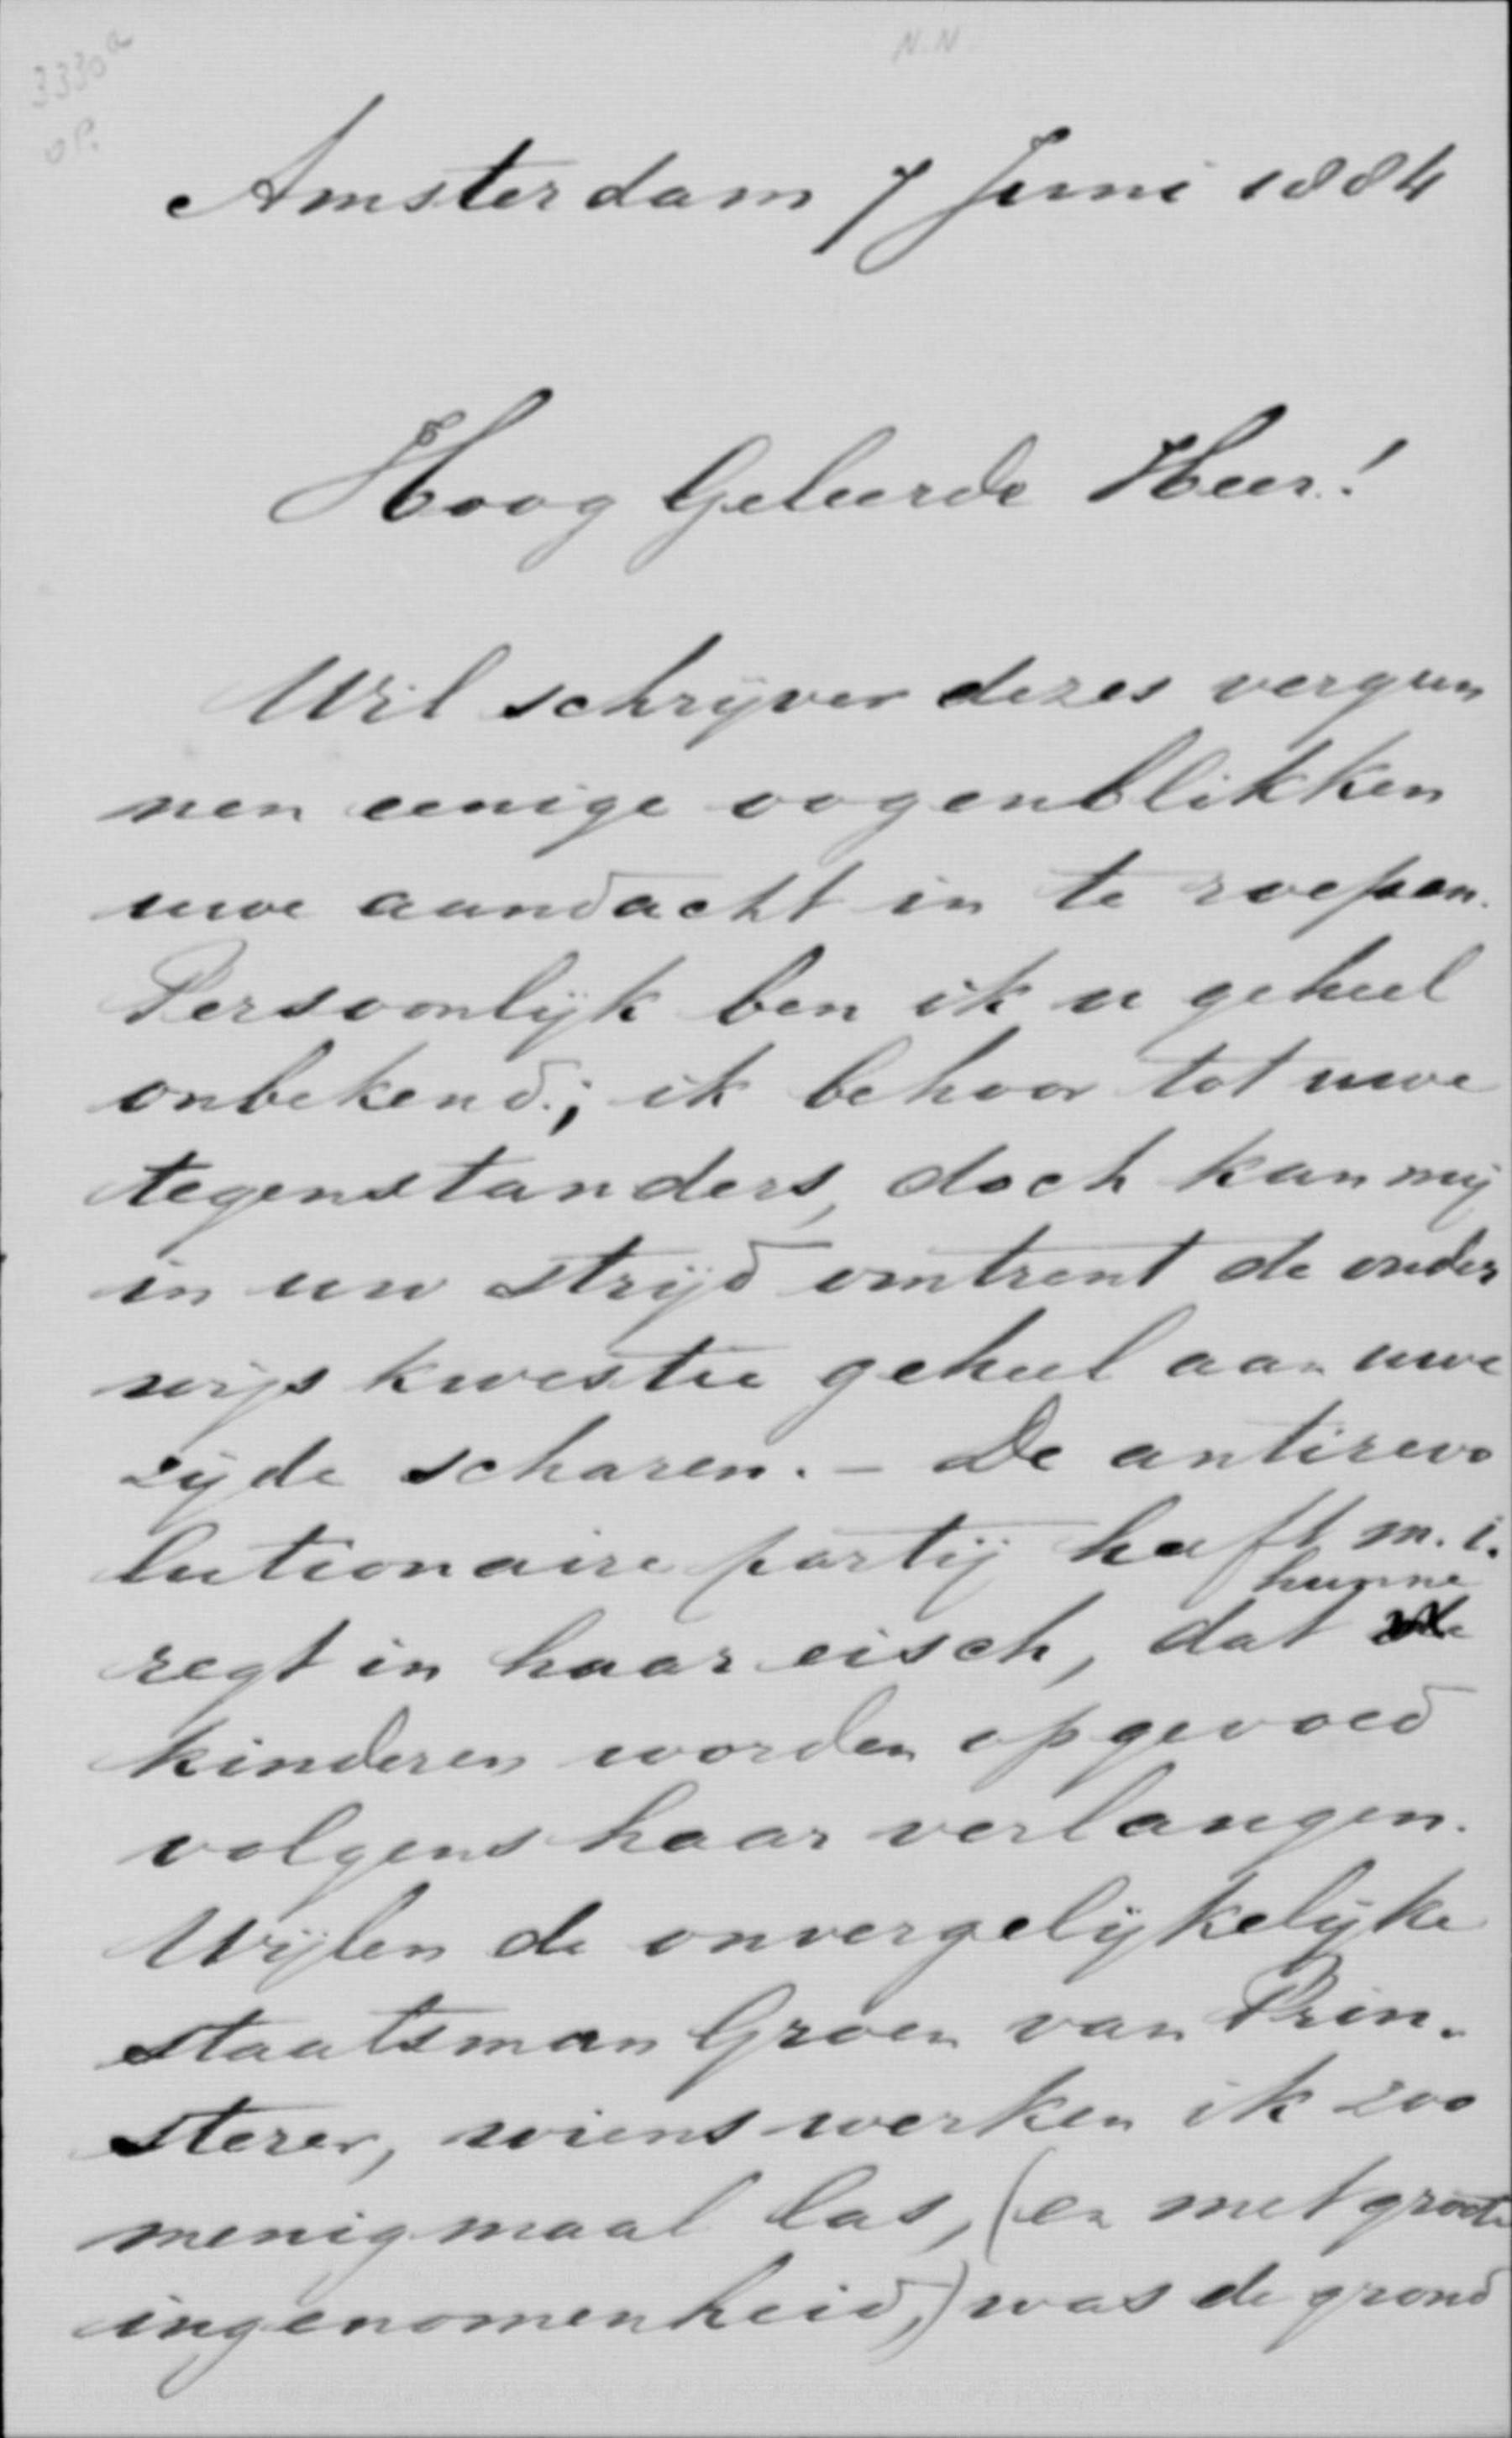 3330a
N.N.
OP.
Amsterdam 7 Juni 1884
Hoog Geleerde Heer!
Wil schrijver dezes vergun
nen eenige oogenblikken
uwe aandacht in te roepen.
Persoonlijk ben ik u geheel
onbekend; ik behoor tot uwe
tegenstanders, doch kan mij
in uw strijd omtrent de onder
wijs kwestie geheel aan uwe
zijde scharen. – De antirevo
lutionaire partij heeft m. i.
hunne
regt in haar eisch, dat
kinderen worden opgevoed
volgens haar verlangen.
Wijlen de onvergelijkelijke
staatsman Groen van Prin-
sterer, wiens werken ik zoo
menigmaal las, (en met groote
ingenomenheid,) was de grond